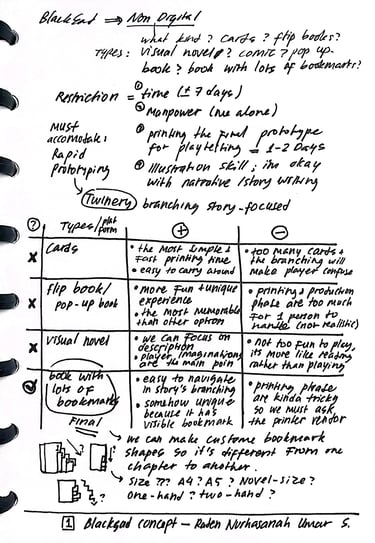 Blacksad ⇒ Non Digital
what kind? cards? flip books?
Types: visual novel? comic? pop up-
book? book with lots of bookmarks?
Restriction = ① time (± 7 days)
② Manpower (me alone)
Must
accomodate:
Rapid
Prototyping
③ printing the final prototype
for playtesting = 1-2 Days
④ Illustration skill; im okay
with narrative/story writing
Twinery branching story-focused
? Types/platform + -
x Cards
• the most simple &
fast printing time
• easy to carry around
• too many cards &
the branching will
make player confuse
x Flip book/
pop-up book
• more fun & unique
experience
• the most memorable
than other option
• printing & production
phase are too much
for 1 person to
handle (not realistic)
x Visual novel
• we can focus on
description
• player imaginations
are the main poin
• not too fun to play,
it's more like reading
rather than playing
book with
lots of
bookmarks
Final
• easy to navigate
in story's branching
• somehow unique
because it has
visible bookmark
• printing phase
are kinda tricky
so we must ask
the printer vendor
→ we can make custome bookmark
shapes so it's different from one
chapter to another.
→ size ??? A4? A5? Novel-size?
one-hand? two-hand?
1 Blacksad concept – Raden Nurhasanah Umar S.